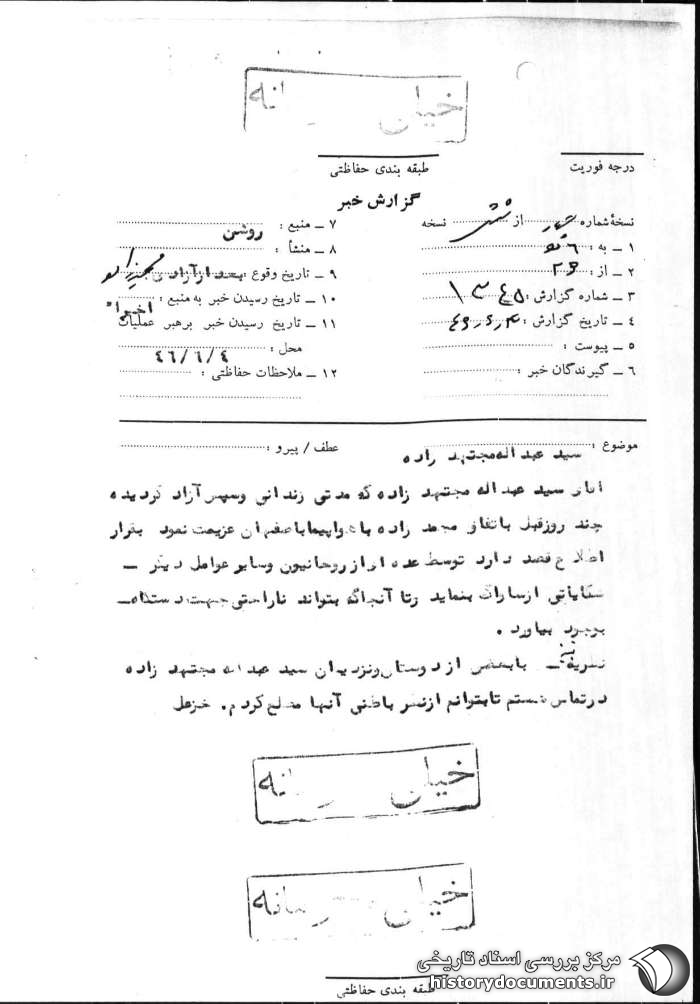 خیلی محرمانه
درجه فوریت
طبقه بندی حفاظتی
گزارش خبر
نسخهٔ شماره از نسخه
۱ ـ به :
۲ ـ از :
۳ ـ شماره گزارش :
٤ ـ تاریخ گزارش :
٥ ـ پیوست :
٦ ـ گیرندگان خبر :
۷ ـ منبع : روشن
۸ ـ منشأ :
۹ ـ تاریخ وقوع : بعد از آزادی
۱۰ ـ تاریخ رسیدن خبر به منبع : اخیراً
۱۱ ـ تاریخ رسیدن خبر برهبر عملیات
محل : ٤٦/٦/٤
۱۲ ـ ملاحظات حفاظتی :
موضوع : سید عبداله مجتهد زاده
عطف / پیرو :
آقای سید عبداله مجتهد زاده که مدتی زندانی وسپس آزاد گردیده
چند روزقبل باتفاق محمد زاده باهواپیما باصفهان عزیمت نمود بقرار
اطلاع قصد دارد توسط عده ای از روحانیون وسایر عوامل دیگر ـ
شکایاتی ازساواک بنماید وتا آنجاکه بتواند ناراحتی جهت دستگاه ـ
بوجود بیاورد .
نظریه منبع ـ بابعضی از دوستان ونزدیکان سید عبداله مجتهد زاده
درتماس هستم تابتوانم ازنظر باطنی آنها مطلع گردم. خزعل
خیلی محرمانه
خیلی محرمانه
طبقه بندی حفاظتی
مرکز بررسی اسناد تاریخی
historydocuments.ir